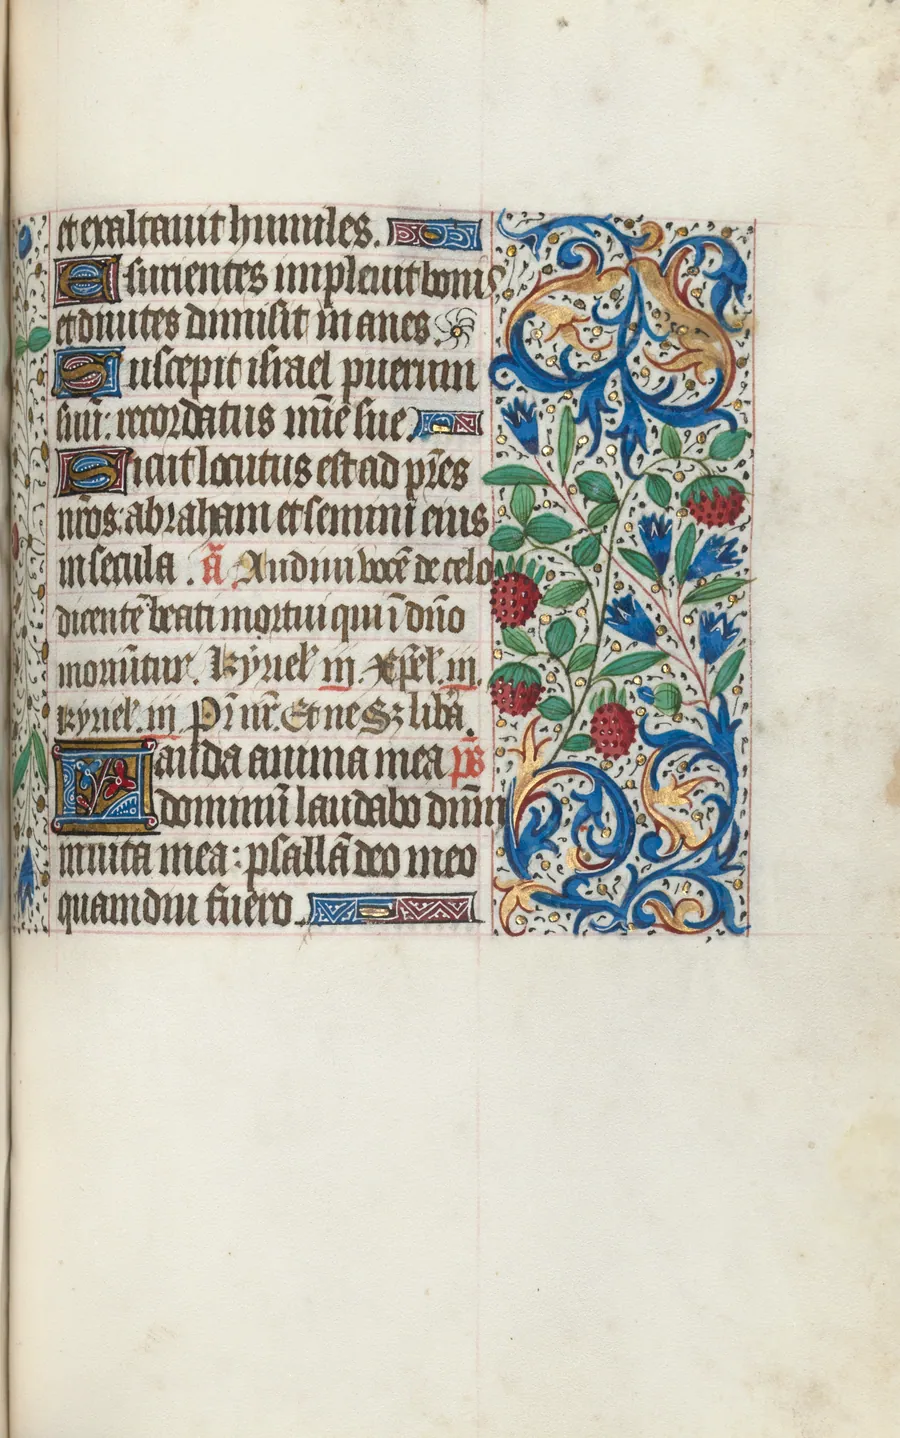 et exaltauit humiles.
Esurientes impleuit bonis
et diuites dimisit inanes
Suscepit israel puerum
suū: recordatus mīe sue
Sicut locutus est ad pr̄es
nr̄os: abraham et semini eius
in secula. ā Audiui vocē de celo
dicentē beati mortui qui ī dn̄o
moriūtur. kyriel̄ iij. Xp̄el̄. iij.
kyriel̄. iij Pr̄ nr̄. Et ne Sz libā.
Lauda anima mea ps̄
dominū laudabo dn̄m
in uita mea: psallā deo meo
quamdiu fuero